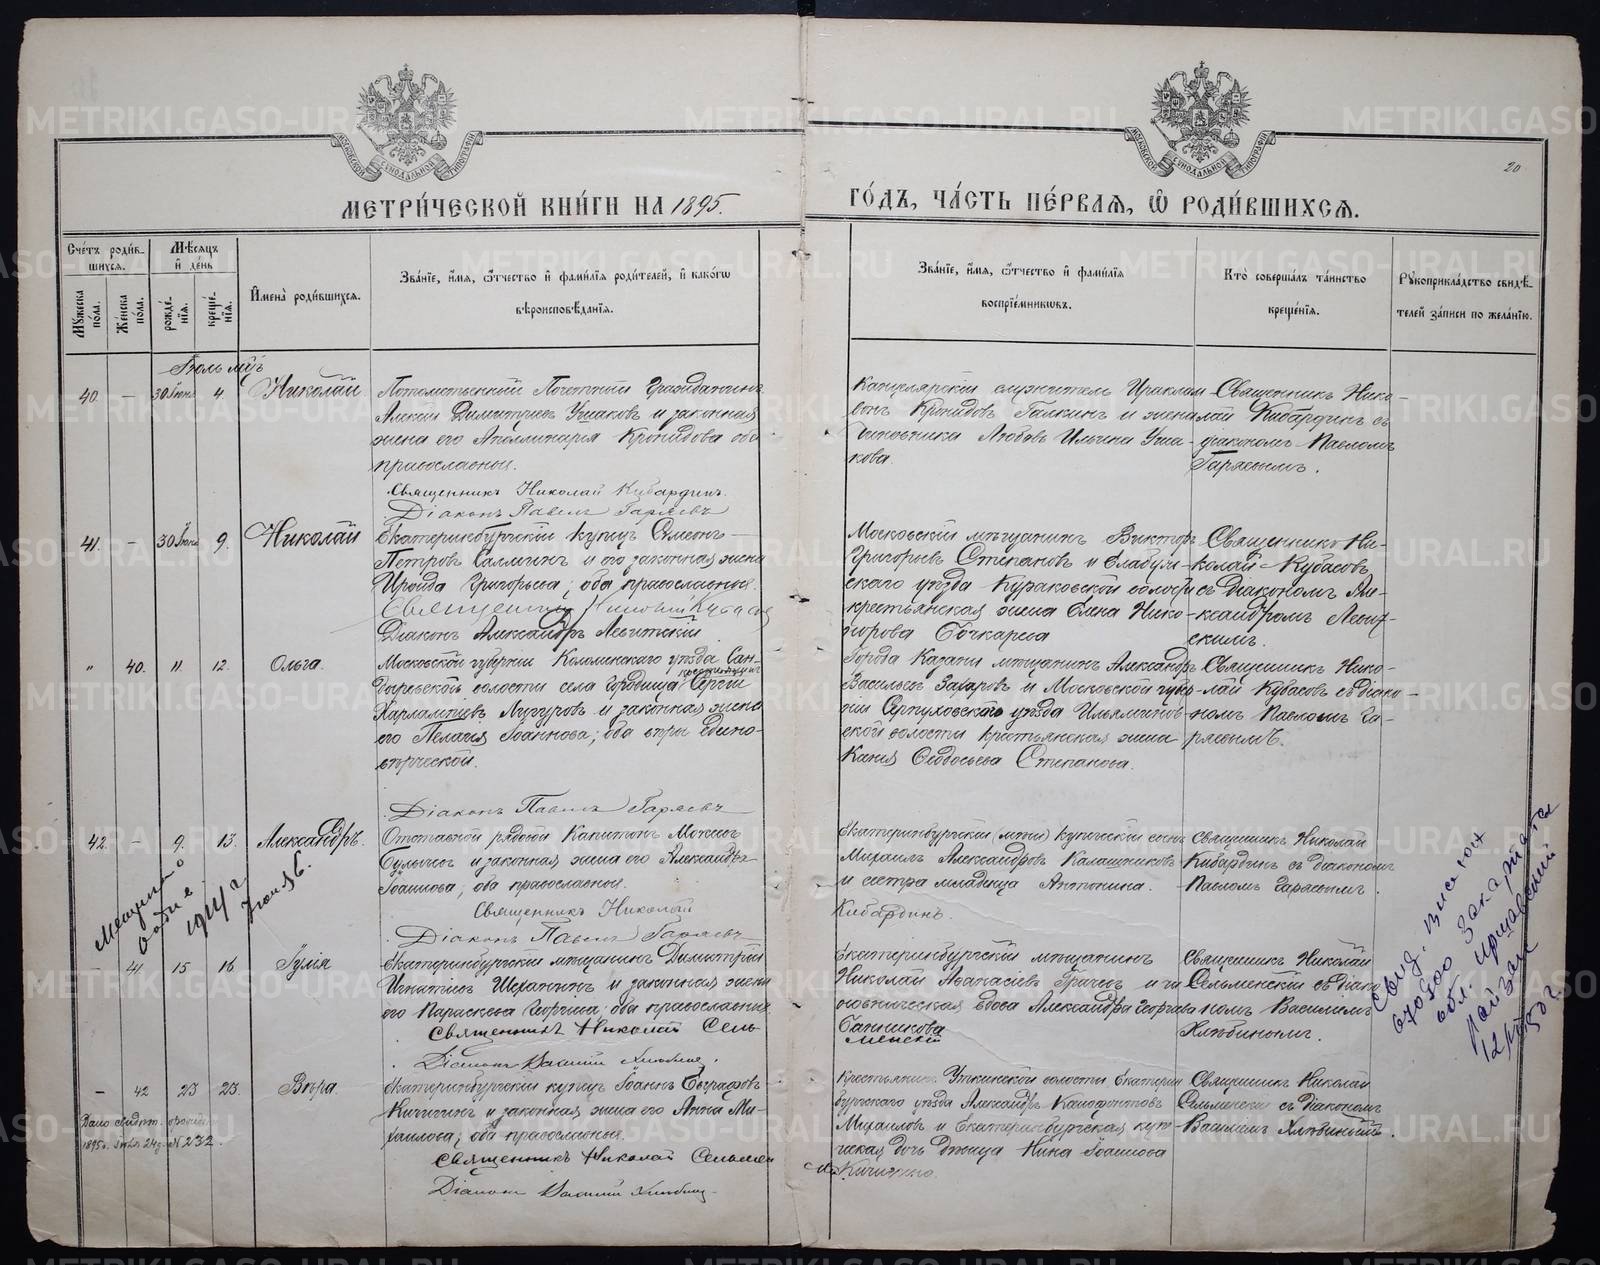 МОСКОВСКОЙ СУНОДАЛЬНОЙ ТИПОГРАФІИ
МОСКОВСКОЙ СУНОДАЛЬНОЙ ТИПОГРАФІИ
20
МЕТРИ́ЧЕСКОЙ КНИ́ГИ НА 1895.
ГО́ДЪ, ЧА́СТЬ ПЕ́РВАЯ, Ѡ РОДИ́ВШИХСЯ.
Сче́тъ роди́вшихся.
Мѣ́сяцъ и де́нь
Мꙋ́жеска по́ла.
Же́нска по́ла.
рожде́нїя.
креще́нїя.
И҆мена̀ роди́вшихся.
Зва́нїе, и҆́мя, ѻ҆́тчество и҆ фами́лїя роди́телей, и҆ како́гѡ
вѣроисповѣ́данїя.
Зва́нїе, и҆́мя, ѻ҆́тчество и҆ фами́лїя
воспрїе́мникѡвъ.
Кто̀ соверша́лъ та́инство
креще́нїя.
Рꙋкоприкла́дство свидѣ́-
телей за́писи по жела́нїю.
Іюль мц̃ъ
40. — 30 Іюня 4. Николай.
Потомственный Почетный Гражданинъ
Алексій Димитріевъ Ушаковъ и законная
жена его Аполлинарія Кронидова оба
православные.
Священникъ Николай Кибардинъ.
Діаконъ Павелъ Гаряевъ
Канцелярскій служитель Ираклій
вонъ Кронидовъ Галкинъ и жена
Чиновника Любовь Ильина Уша-
кова.
Священникъ Нико-
лай Кибардинъ съ
діакономъ Павломъ
Гаряевымъ.
41. — 30 Іюня 9. Николай
Екатеринбургскій купецъ Симеонъ
Петровъ и его законная жена
Ираида Григорьева; оба православные.
Священникъ Николай Кубасовъ
Діаконъ Александръ Левитскій
Московскій мѣщанинъ Викторъ
Григорьевъ Степановъ и Елабуж-
скаго уѣзда Кураковской волости
крестьянская жена Елена Нико-
норова Бочкарева
Священникъ Ни-
колай Кубасовъ
съ діакономъ Але-
ксандромъ Левит-
скимъ.
" 40. 11 12. Ольга.
Московской губерніи Коломенскаго уѣзда Сан-
дыревской волости села Городища крестьянинъ Сергій
Харлампіевъ и законная жена
его Пелагія Іоаннова; оба вѣры едино-
вѣрческой.
Діаконъ Павелъ Гаряевъ
Города Казани мѣщанинъ Александръ
Васильевъ Захаровъ и Московской губер-
ніи Серпуховскаго уѣзда
ской волости крестьянская жена
Ксенія Ѳеодосьева Степанова.
Священникъ Нико-
лай Кубасовъ съ діако-
номъ Павломъ Га-
ряевымъ.
42. — 9. 13. Александръ.
Отставной рядовой Капитонъ
и законная жена его Александра
Іоаннова; оба православные.
Священникъ Николай
Кибардинъ.
Діаконъ Павелъ Гаряевъ
Екатеринбургскій купеческій сынъ
Михаилъ Александровъ Калашниковъ
и сестра младенца Антонина.
Священникъ Николай
Кибардинъ съ діакономъ
Павломъ Гаряевымъ.
1914 г.
— 41 15 16 Іулія
Екатеринбургскій мѣщанинъ Димитрій
Игнатьевъ и законная жена
его Параскева Георгіева; оба православные.
Священникъ Николай Сель-
менскій
Діаконъ Василій Хлѣбинъ.
Екатеринбургскій мѣщанинъ
Николай Аѳанасіевъ Грачевъ и чи-
новническая вдова Александра Георгіева
Банникова
Священникъ Николай
Сельменскій съ діако-
номъ Василіемъ
Хлѣбинымъ.
— 42 23 23. Вѣра.
Дано свидѣт.
1895 г. Іюля 24 д. № 232.
Екатеринбургскій купецъ Іоаннъ Евграфовъ
Кичигинъ и законная жена его Анна Ми-
хаилова; оба православные.
Священникъ Николай Сельмен
скій
Діаконъ Василій Хлѣбинъ.
Крестьянинъ Уткинской волости Екатерин-
бургскаго уѣзда Александръ
Михаиловъ и Екатеринбургская купе-
ческая дочь дѣвица Нина Іоаннова
Кичигина.
Священникъ Николай
Сельменскій съ діакономъ
Василіемъ Хлѣбинымъ.